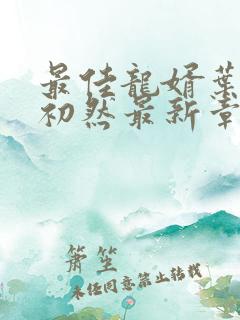 最佳龍婿葉
初然最新章
簫笙
未任同意禁止转载